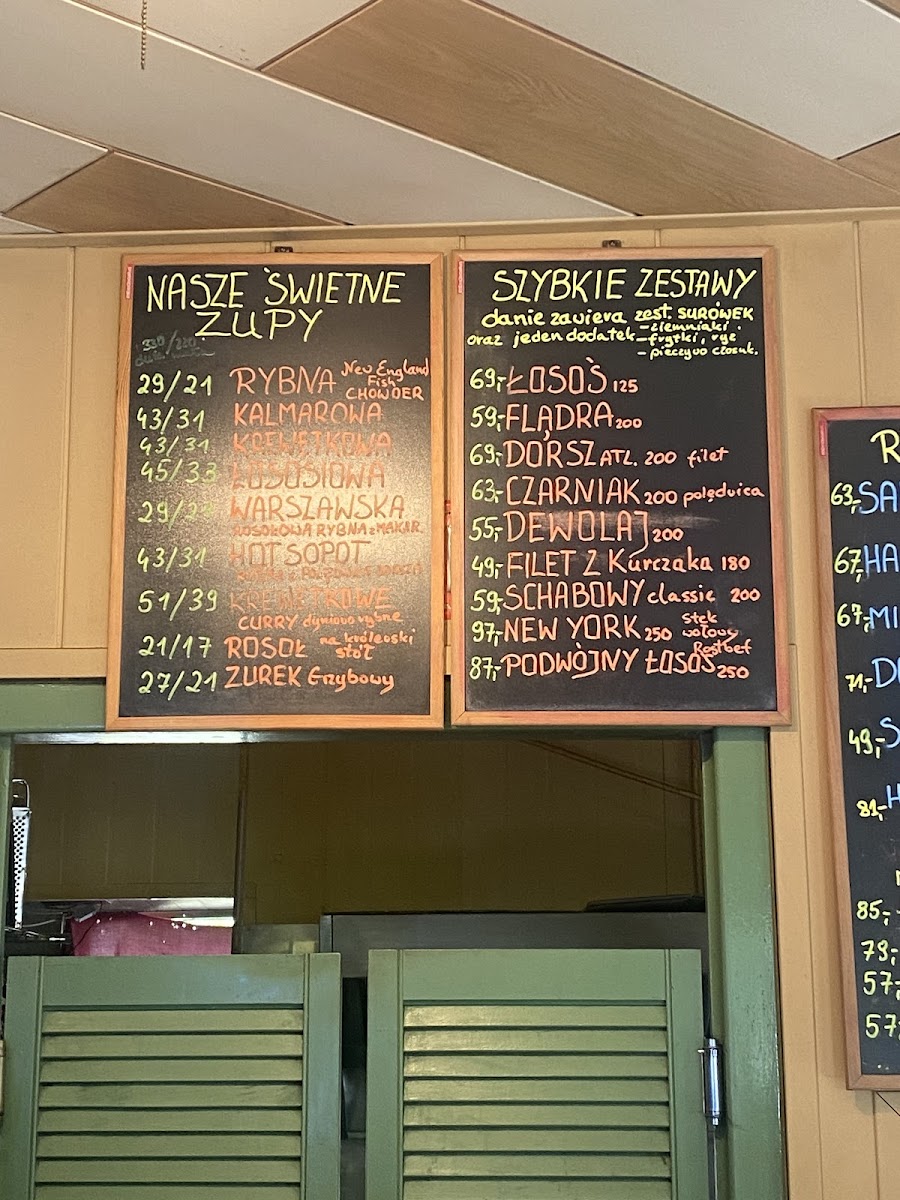 NASZE ŚWIETNE
ZUPY
330/220
29/21 RYBNA New England
Fish
CHOWDER
43/31 KALMAROWA
43/31 KREWETKOWA
45/33 ŁOSOSIOWA
29/21 WARSZAWSKA
ROSOŁOWA RYBNA z MAKAR.
43/31 HOT SOPOT
51/39 KREWETKOWE
CURRY dyniowo rybne
21/17 ROSOŁ na królewski
stół
27/21 ZUREK Grzybowy
SZYBKIE ZESTAWY
danie zawiera zest. SURÓWEK
oraz jeden dodatek - ziemniaki
- frytki, ryż
- pieczywo czosnk.
69,- ŁOSOŚ 125
59,- FLĄDRA 200
69,- DORSZ ATL. 200 filet
63,- CZARNIAK 200 polędwica
55,- DEWOLAJ 200
49,- FILET Z Kurczaka 180
59,- SCHABOWY classic 200
97,- NEW YORK 250 stek
wołowy
Rostbef
87,- PODWÓJNY ŁOSOŚ 250
R
63,- SA
67,- HA
67,- MI
71,- D
49,- S
81,- H
85,-
79,-
57,-
57,